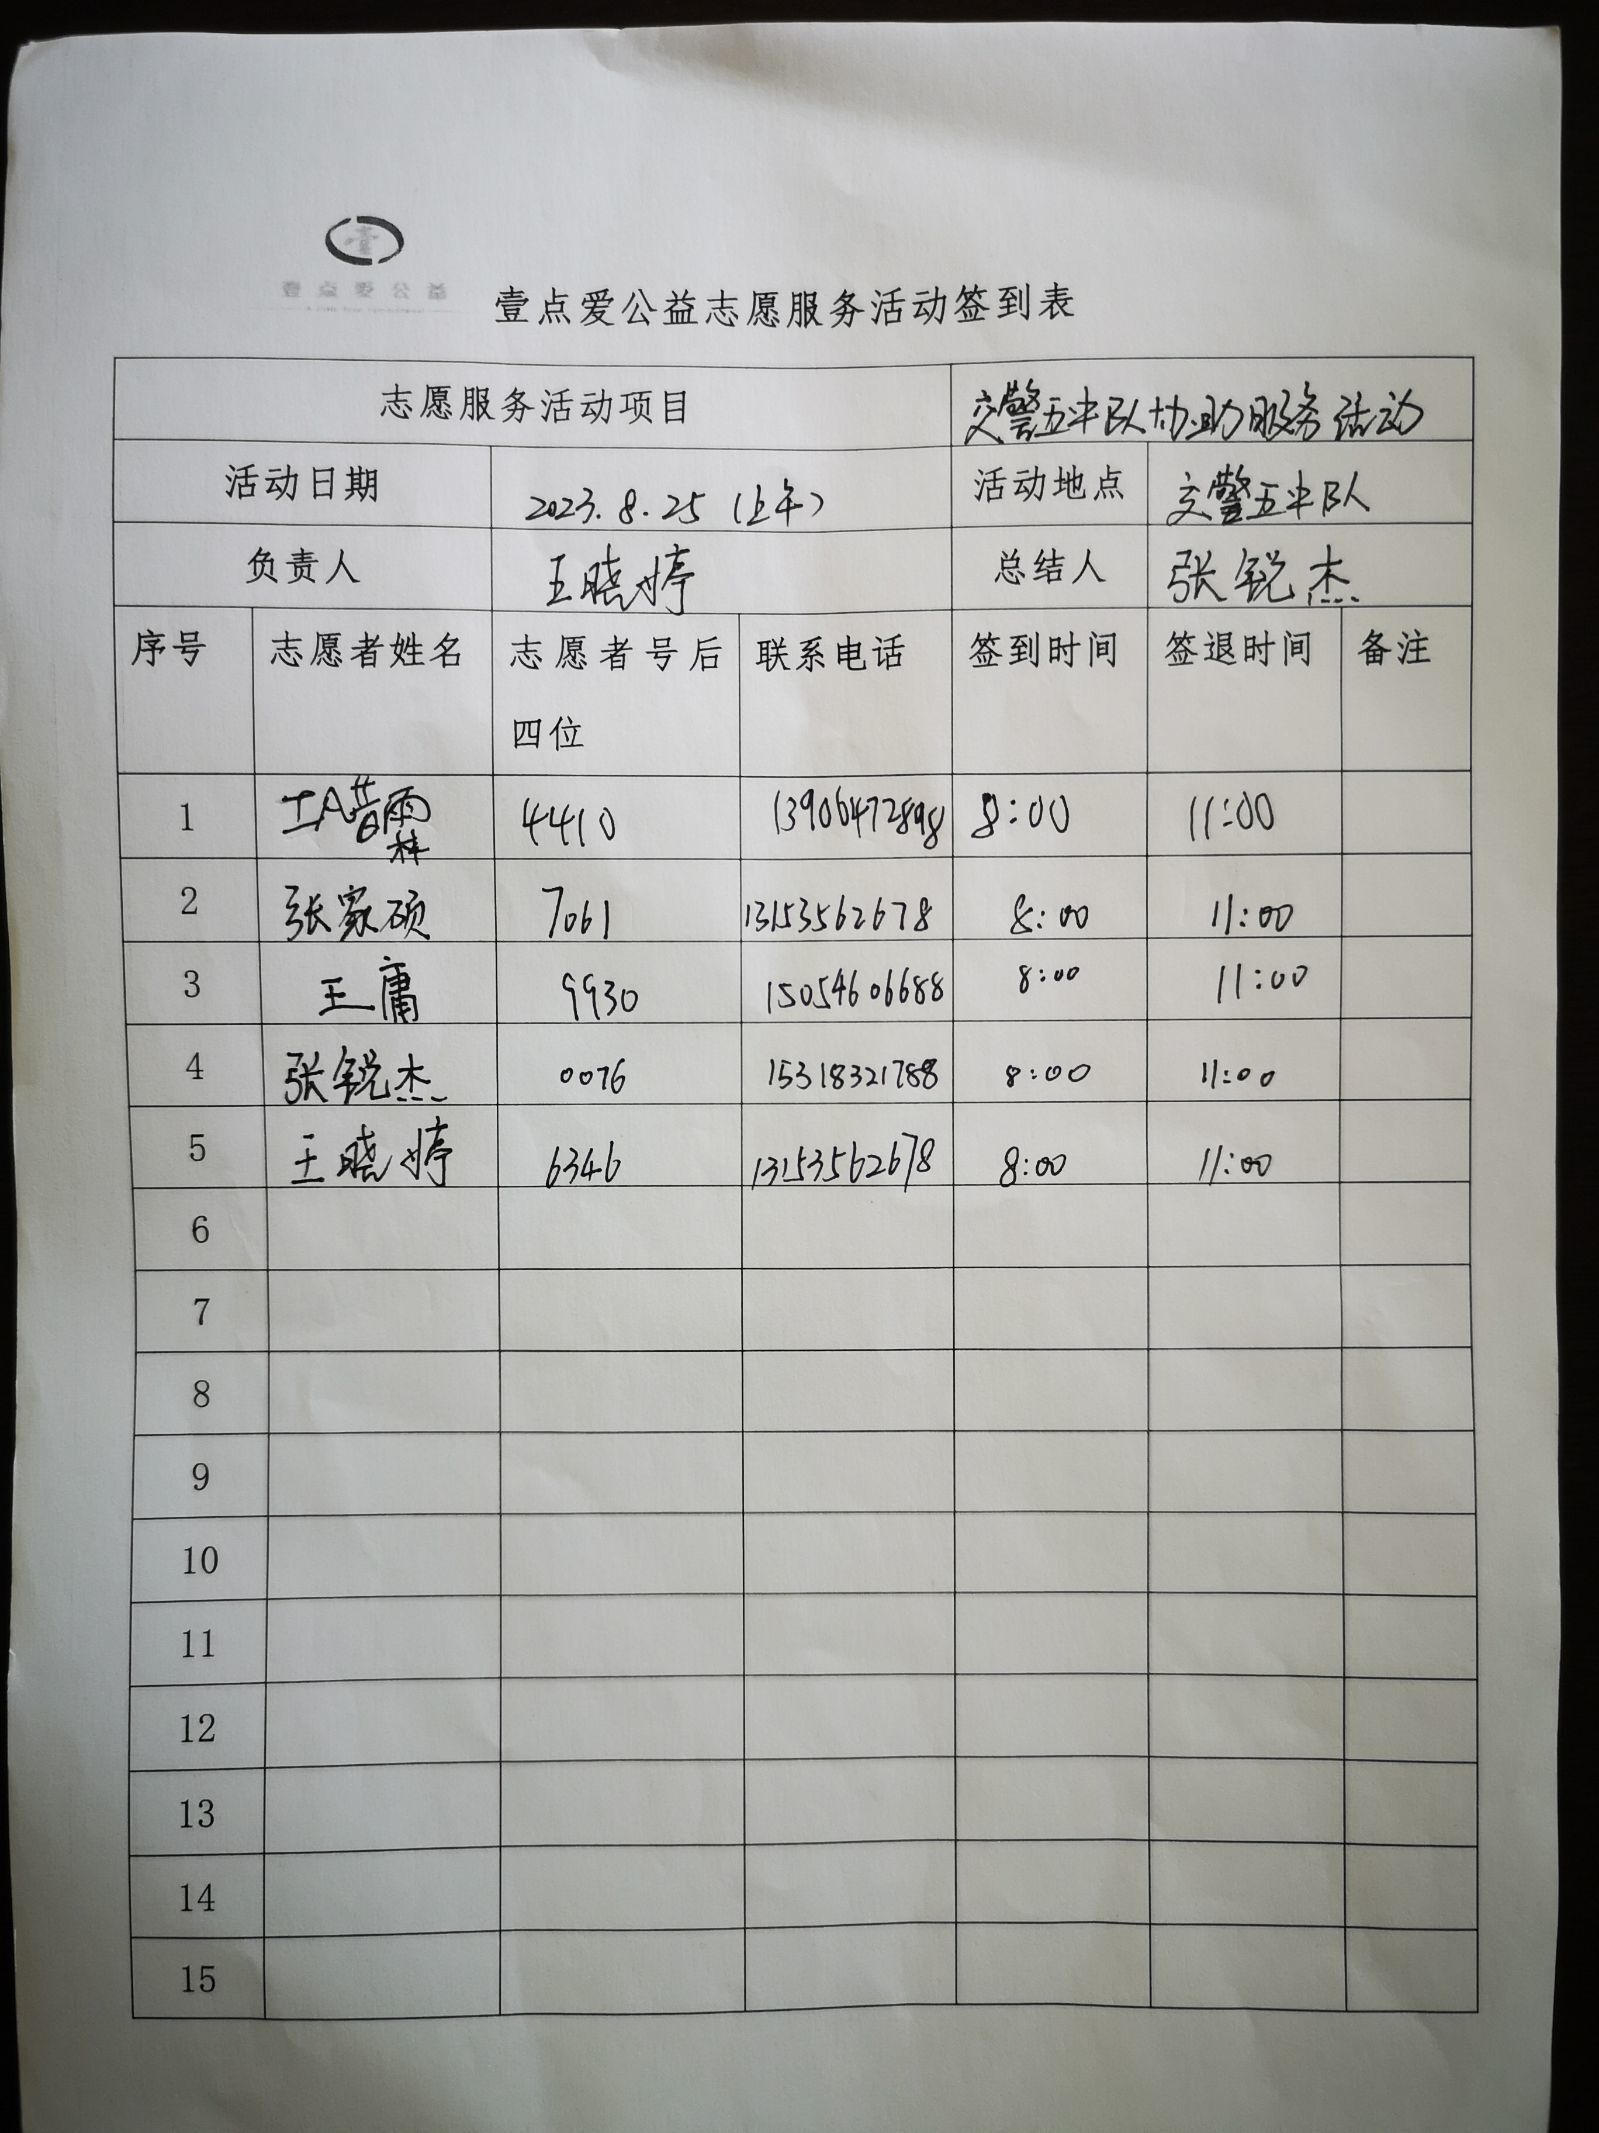 壹点爱公益
壹点爱公益志愿服务活动签到表
志愿服务活动项目 交警五中队协助服务活动
活动日期 2023.8.25（上午） 活动地点 交警五中队
负责人 王晓婷 总结人 张锐杰
序号 志愿者姓名 志愿者号后 联系电话 签到时间 签退时间 备注
四位
1 4410 13906472898 8:00 11:00
2 张家硕 7061 13153562678 8:00 11:00
3 王庸 9930 15054606688 8:00 11:00
4 张锐杰 0076 15318321788 8:00 11:00
5 王晓婷 6346 13153562678 8:00 11:00
6
7
8
9
10
11
12
13
14
15